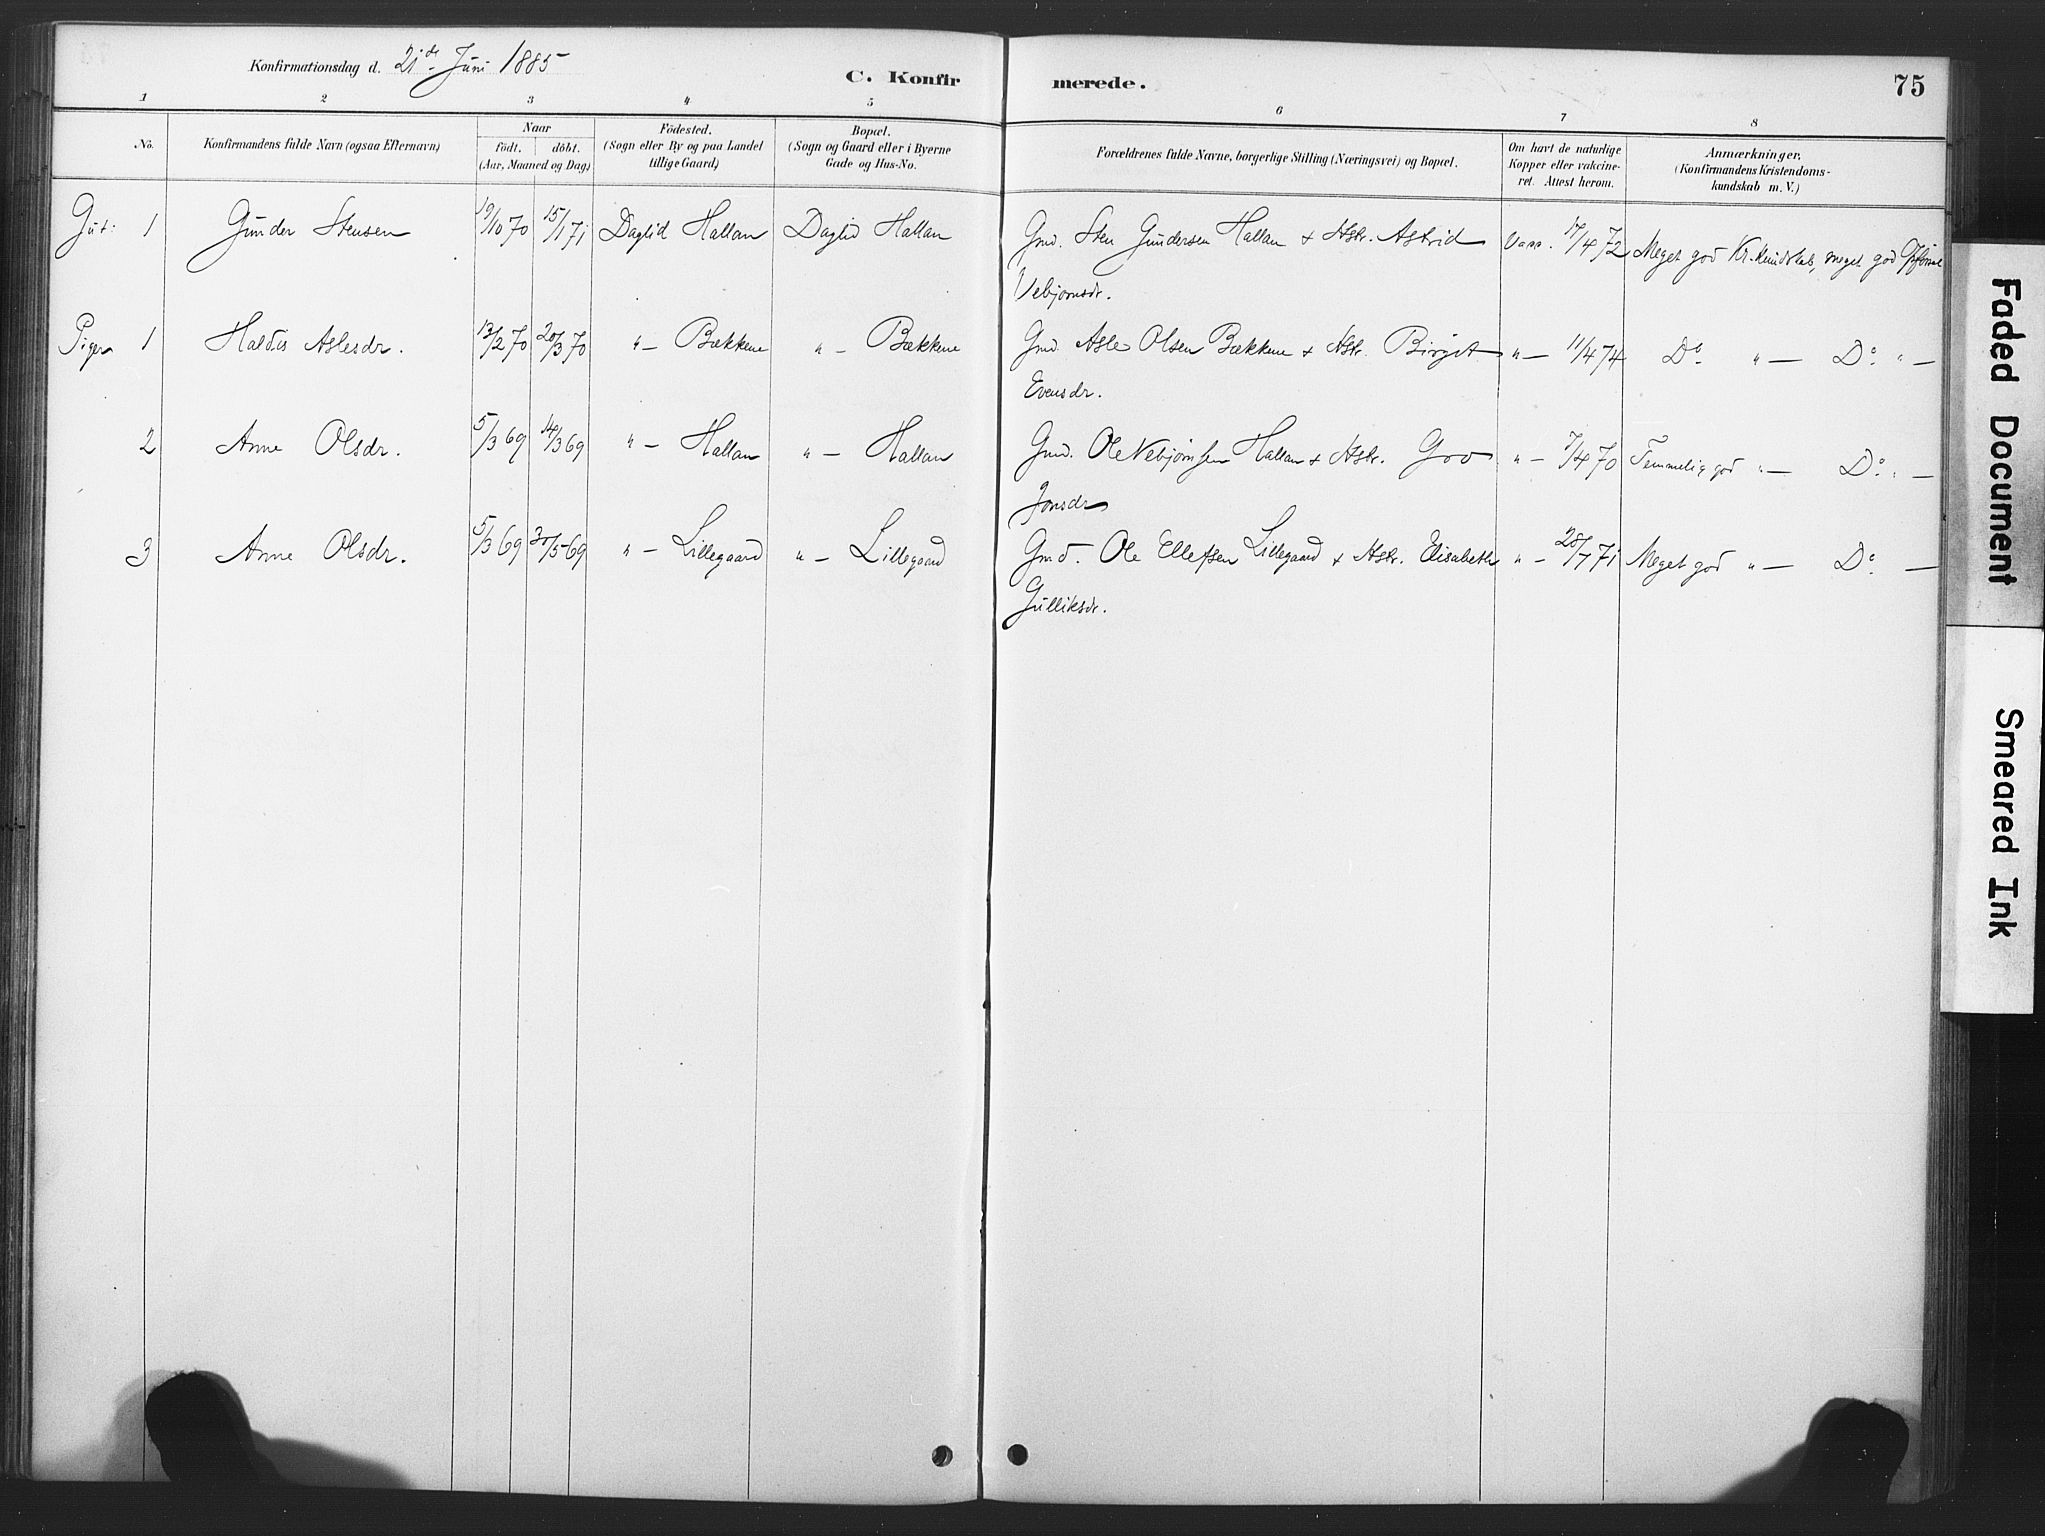 Konfirmationsdag d. 21de Juni 1885
C. Konfirmerede.
75
1 2 3 4 5 6 7 8
No.
Konfirmandens fulde Navn (ogsaa Efternavn)
Naar
födt. döbt.
(Aar, Maaned og Dag)
Födested.
(Sogn eller By og paa Landet
tillige Gaard)
Bopæl.
(Sogn og Gaard eller i Byerne
Gade og Hus-No.
Forældrenes fulde Navne, borgerlige Stilling (Næringsvei) og Bopæl.
Om havt de naturlige
Kopper eller vakcine-
ret. Attest herom.
Anmærkninger.
(Konfirmandens Kristendoms-
kundskab m. V.)
Gut: 1 Gunder Stensen 19/10 70 15/1 71 Daglid Hallan Daglid Hallan Gmd. Sten Gundersen Hallan & Hstr. Astrid Vacc. 17/4 72 Meget god Kr.kundskab, meget god
Vebjørnsdr.
Piger 1 Haldis Aslesdr. 13/2 70 20/3 70 " — Bækkene " — Bækkene Gmd. Asle Olsen Bækkene & Hstr. Birgit " — 11/4 74 Do. " — Do. " —
Evensdr.
2 Anne Olsdr. 5/3 69 14/3 69 " — Hallan " — Hallan Gmd. Ole Vebjørnsen Hallan & Hstr. Gro " — 7/4 70 Temmelig god " — Do. " —
Jonsdr
3 Anne Olsdr. 5/3 69 30/5 69 " — Lillegaard " — Lillegaard Gmd. Ole Ellefsen Lillegaard & Hstr. Elisabeth " — 28/7 71 Meget god " — Do. —
Gulliksdr.
Faded Document
Smeared Ink